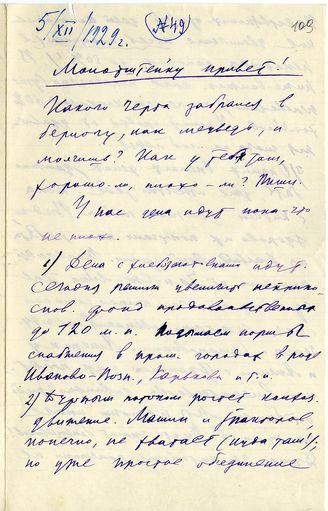 5/XII/1929 г. (№49) 109
Молотштейну привет!
Какого черта забрался в
берлогу, как медведь, и
молчишь? Как у тебя там,
хорошо-ли, плохо-ли? Пиши.
У нас дела идут пока-что
не плохо.
1) Дела с хлебозаготовками идут.
Сегодня решили увеличить неприко-
снов. фонд продовольственный
до 120 м. п. Подымаем нормы
снабжения в пром. городах в роде
Иваново-Возн., Харькова и т. п.
2) Бурным потоком растет колхоз.
движение. Машин и тракторов,
конечно, не хватает (куда там!),
но уже простое объединение